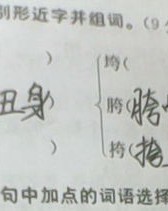 别形近字并组词。(9
) 垮(
丑身) 胯(胯
) 挎(
句中加点的词语选择